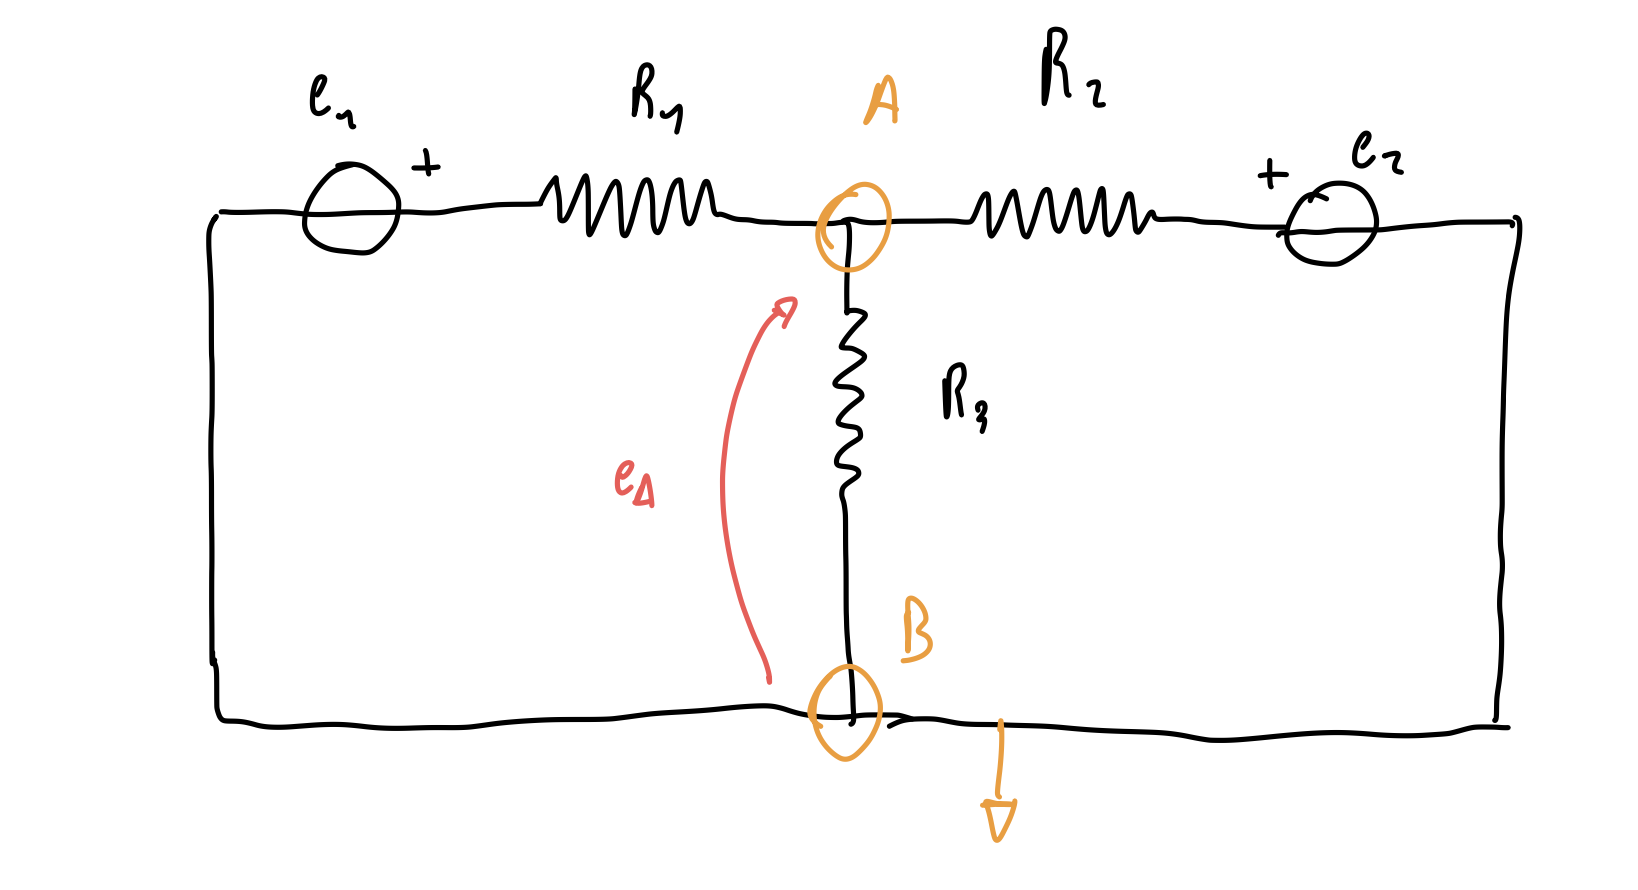 e₁
R₁
A
R₂
+
+
e₂
R₃
e_A
B